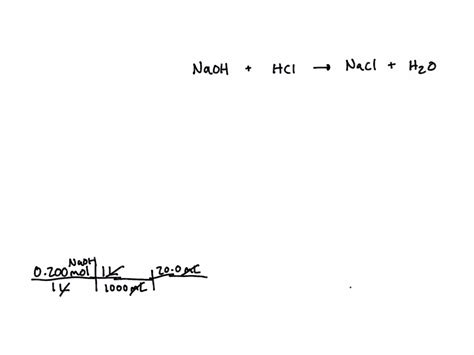 NaOH + HCl → NaCl + H₂O
NaOH
0.200 mol | 1 L | 20.0 mL
1 L | 1000 mL